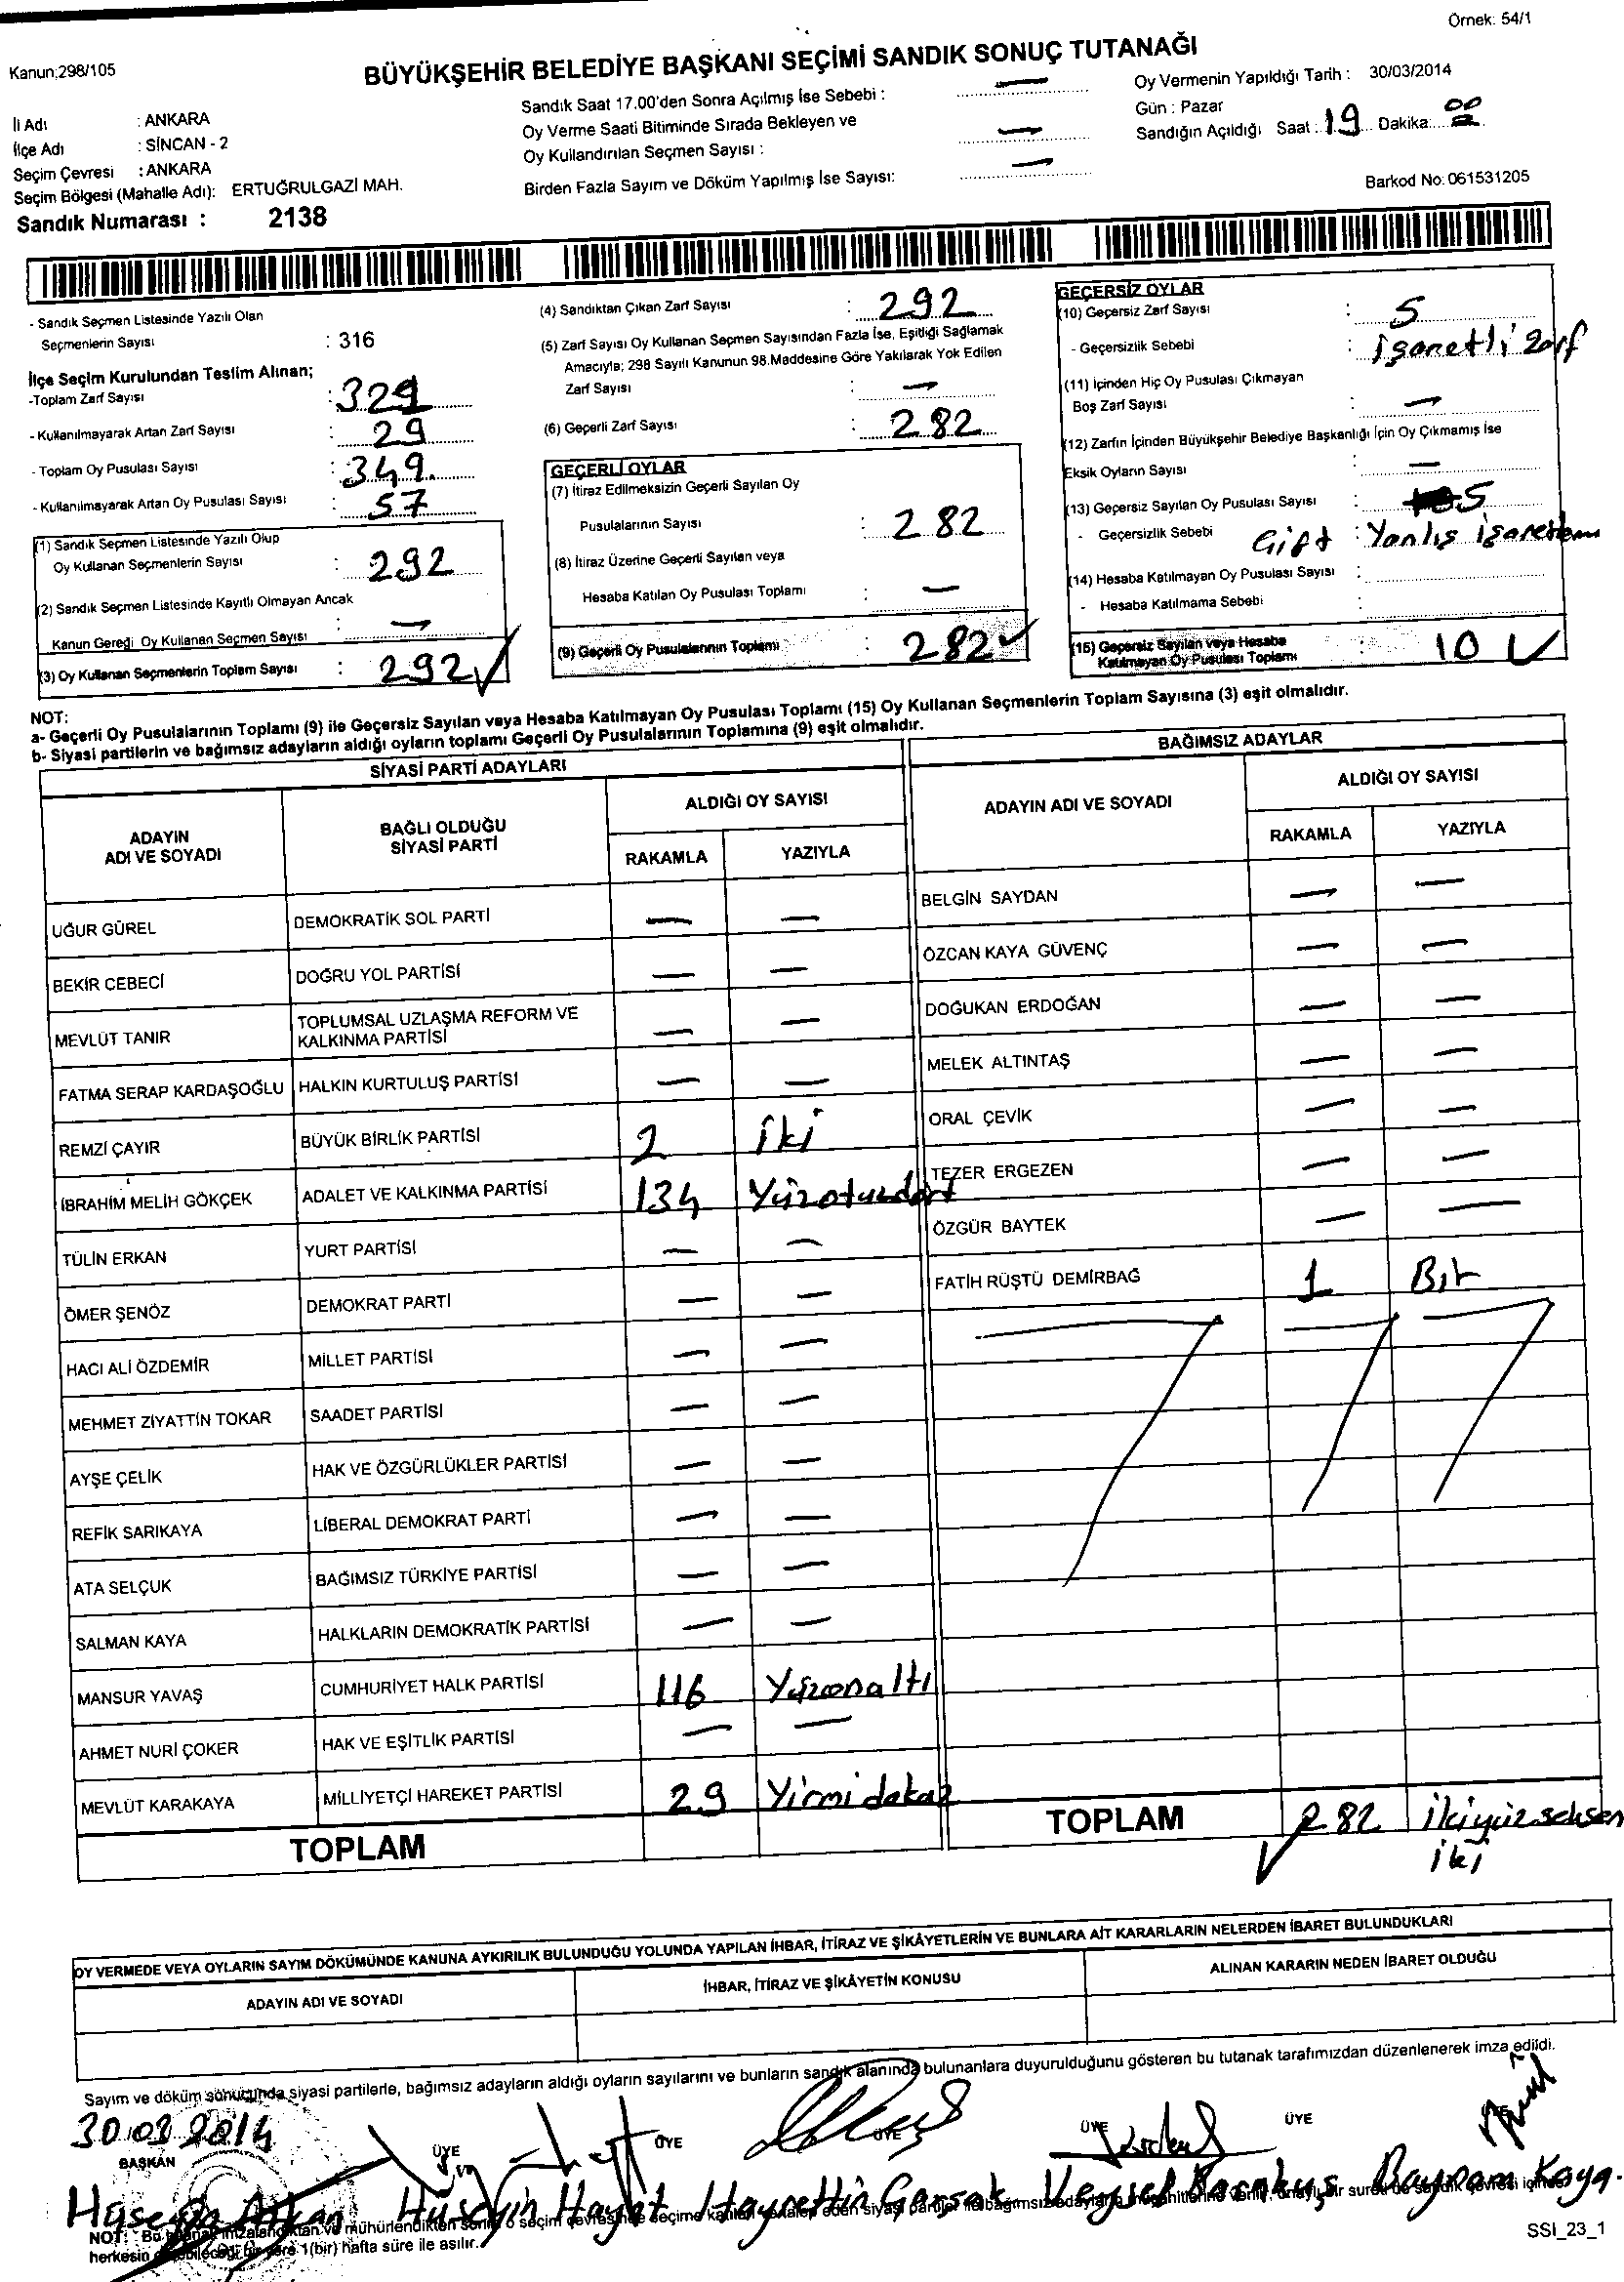 Örnek: 54/1
Kanun;298/105
BÜYÜKŞEHİR BELEDİYE BAŞKANI SEÇİMİ SANDIK SONUÇ TUTANAĞI
İli Adı : ANKARA
İlçe Adı : SİNCAN - 2
Seçim Çevresi : ANKARA
Seçim Bölgesi (Mahalle Adı): ERTUĞRULGAZİ MAH.
Sandık Numarası : 2138
Sandık Saat 17.00'den Sonra Açılmış İse Sebebi : —
Oy Verme Saati Bitiminde Sırada Bekleyen ve
Oy Kullandırılan Seçmen Sayısı : —
Birden Fazla Sayım ve Döküm Yapılmış İse Sayısı: —
Oy Vermenin Yapıldığı Tarih : 30/03/2014
Gün : Pazar
Sandığın Açıldığı Saat : 19 Dakika: 00
Barkod No: 061531205
- Sandık Seçmen Listesinde Yazılı Olan
Seçmenlerin Sayısı : 316
İlçe Seçim Kurulundan Teslim Alınan;
-Toplam Zarf Sayısı : 329
- Kullanılmayarak Artan Zarf Sayısı : 29
- Toplam Oy Pusulası Sayısı : 349.
- Kullanılmayarak Artan Oy Pusulası Sayısı : 57
(1) Sandık Seçmen Listesinde Yazılı Olup
Oy Kullanan Seçmenlerin Sayısı : 292
(2) Sandık Seçmen Listesinde Kayıtlı Olmayan Ancak
Kanun Gereği Oy Kullanan Seçmen Sayısı : —
(3) Oy Kullanan Seçmenlerin Toplam Sayısı : 292 ✓
(4) Sandıktan Çıkan Zarf Sayısı : 292
(5) Zarf Sayısı Oy Kullanan Seçmen Sayısından Fazla İse, Eşitliği Sağlamak
Amacıyla; 298 Sayılı Kanunun 98.Maddesine Göre Yakılarak Yok Edilen
Zarf Sayısı : —
(6) Geçerli Zarf Sayısı : 282
GEÇERLİ OYLAR
(7) İtiraz Edilmeksizin Geçerli Sayılan Oy
Pusulalarının Sayısı : 282
(8) İtiraz Üzerine Geçerli Sayılan veya
Hesaba Katılan Oy Pusulası Toplamı : —
(9) Geçerli Oy Pusulalarının Toplamı : 282 ✓
GEÇERSİZ OYLAR
(10) Geçersiz Zarf Sayısı : 5
- Geçersizlik Sebebi : işaretli Zarf
(11) İçinden Hiç Oy Pusulası Çıkmayan
Boş Zarf Sayısı : —
(12) Zarfın İçinden Büyükşehir Belediye Başkanlığı İçin Oy Çıkmamış İse
Eksik Oyların Sayısı : —
(13) Geçersiz Sayılan Oy Pusulası Sayısı : 5
- Geçersizlik Sebebi Çift : Yanlış işaretleme
(14) Hesaba Katılmayan Oy Pusulası Sayısı :
- Hesaba Katılmama Sebebi :
(15) Geçersiz Sayılan veya Hesaba
Katılmayan Oy Pusulası Toplamı : 10 ✓
NOT:
a- Geçerli Oy Pusulalarının Toplamı (9) ile Geçersiz Sayılan veya Hesaba Katılmayan Oy Pusulası Toplamı (15) Oy Kullanan Seçmenlerin Toplam Sayısına (3) eşit olmalıdır.
b- Siyasi partilerin ve bağımsız adayların aldığı oyların toplamı Geçerli Oy Pusulalarının Toplamına (9) eşit olmalıdır.
SİYASİ PARTİ ADAYLARI
ADAYIN ADI VE SOYADI BAĞLI OLDUĞU SİYASİ PARTİ ALDIĞI OY SAYISI
RAKAMLA YAZIYLA
UĞUR GÜREL DEMOKRATİK SOL PARTİ — —
BEKİR CEBECİ DOĞRU YOL PARTİSİ — —
MEVLÜT TANIR TOPLUMSAL UZLAŞMA REFORM VE KALKINMA PARTİSİ — —
FATMA SERAP KARDAŞOĞLU HALKIN KURTULUŞ PARTİSİ — —
REMZİ ÇAYIR BÜYÜK BİRLİK PARTİSİ 2 iki
İBRAHİM MELİH GÖKÇEK ADALET VE KALKINMA PARTİSİ 134 Yüzotuzdört
TÜLİN ERKAN YURT PARTİSİ — —
ÖMER ŞENÖZ DEMOKRAT PARTİ — —
HACI ALİ ÖZDEMİR MİLLET PARTİSİ — —
MEHMET ZİYATTİN TOKAR SAADET PARTİSİ — —
AYŞE ÇELİK HAK VE ÖZGÜRLÜKLER PARTİSİ — —
REFİK SARIKAYA LİBERAL DEMOKRAT PARTİ — —
ATA SELÇUK BAĞIMSIZ TÜRKİYE PARTİSİ — —
SALMAN KAYA HALKLARIN DEMOKRATİK PARTİSİ — —
MANSUR YAVAŞ CUMHURİYET HALK PARTİSİ 116 Yüzonaltı
AHMET NURİ ÇOKER HAK VE EŞİTLİK PARTİSİ — —
MEVLÜT KARAKAYA MİLLİYETÇİ HAREKET PARTİSİ 29 Yirmidokuz
TOPLAM
BAĞIMSIZ ADAYLAR
ADAYIN ADI VE SOYADI ALDIĞI OY SAYISI
RAKAMLA YAZIYLA
BELGİN SAYDAN — —
ÖZCAN KAYA GÜVENÇ — —
DOĞUKAN ERDOĞAN — —
MELEK ALTINTAŞ — —
ORAL ÇEVİK — —
TEZER ERGEZEN — —
ÖZGÜR BAYTEK — —
FATİH RÜŞTÜ DEMİRBAĞ 1 Bir
TOPLAM 282 ikiyüzseksen
iki
OY VERMEDE VEYA OYLARIN SAYIM DÖKÜMÜNDE KANUNA AYKIRILIK BULUNDUĞU YOLUNDA YAPILAN İHBAR, İTİRAZ VE ŞİKÂYETLERİN VE BUNLARA AİT KARARLARIN NELERDEN İBARET BULUNDUKLARI
ADAYIN ADI VE SOYADI İHBAR, İTİRAZ VE ŞİKÂYETİN KONUSU ALINAN KARARIN NEDEN İBARET OLDUĞU
Sayım ve döküm sonucunda siyasi partilerle, bağımsız adayların aldığı oyların sayılarını ve bunların sandık alanında bulunanlara duyurulduğunu gösteren bu tutanak tarafımızdan düzenlenerek imza edildi.
30.03.2014
BAŞKAN ÜYE ÜYE ÜYE ÜYE ÜYE
Hüseyin Hayat Hayrettin Veysel Bayram Kaya
NOT: Bu tutanak imzalandıktan ve mühürlendikten sonra o seçim çevresinde seçime katılan
herkesin 1(bir) hafta süre ile asılır.
SSİ_23_1